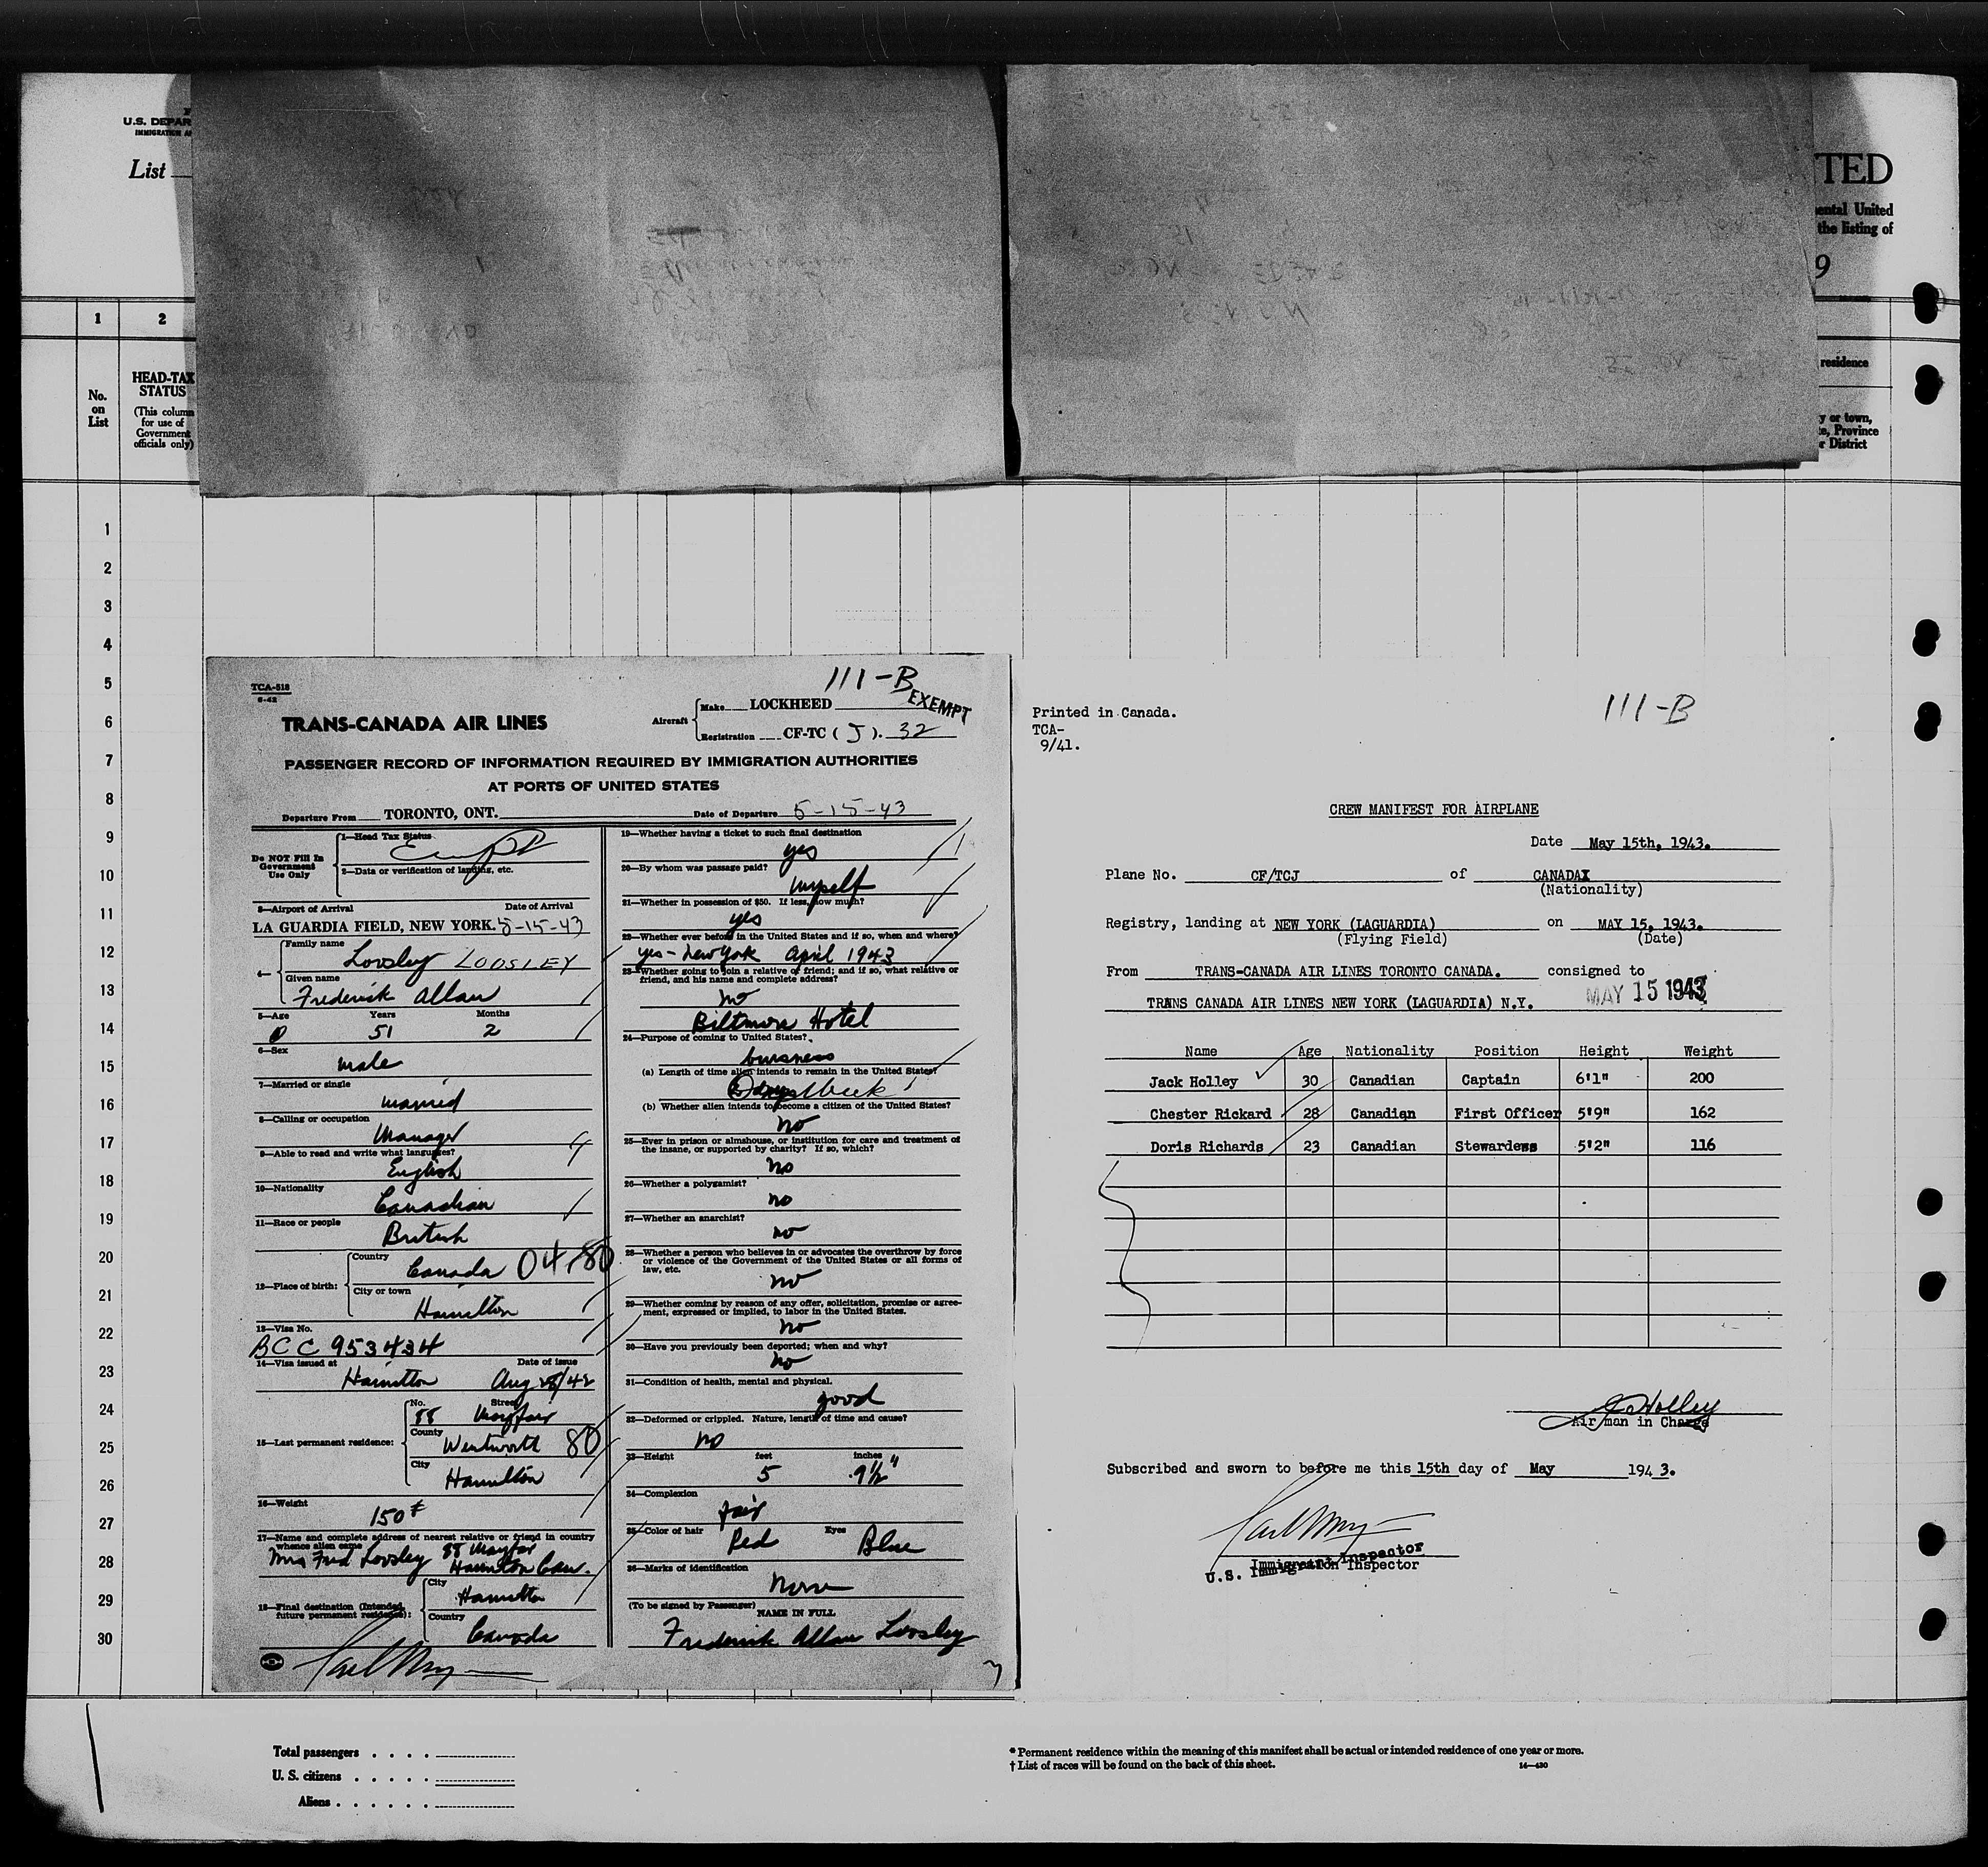 U.S. DEPAR
IMMIGRATION A
List
TED
ental United
the listing of
9
1 2
No.
on
List
HEAD-TAX
STATUS
(This column
for use of
Government
officials only)
residence
y or town,
te, Province
r District
1
2
3
4
5
6
7
8
9
10
11
12
13
14
15
16
17
18
19
20
21
22
23
24
25
26
27
28
29
30
111-B
TCA-518
6-42
EXEMPT
TRANS-CANADA AIR LINES
Aircraft
Make LOCKHEED
Registration CF-TC ( J ). 32
PASSENGER RECORD OF INFORMATION REQUIRED BY IMMIGRATION AUTHORITIES
AT PORTS OF UNITED STATES
Departure From TORONTO, ONT. Date of Departure 5-15-43
Do NOT Fill In
Government
Use Only
1—Head Tax Status
2—Data or verification of landing, etc.
3—Airport of Arrival Date of Arrival
LA GUARDIA FIELD, NEW YORK. 5-15-43
4—
Family name
Loosley LOOSLEY
Given name
Frederick Allan
5—Age Years Months
51 2
6—Sex
male
7—Married or single
married
8—Calling or occupation
Manager
9—Able to read and write what languages?
English
10—Nationality
Canadian
11—Race or people
British
12—Place of birth:
Country
Canada 04-80
City or town
Hamilton
13—Visa No.
BCC 953434
14—Visa issued at Date of issue
Hamilton Aug 28/42
15—Last permanent residence:
No. Street
88 Mayfair
County
Wentworth 80
City
Hamilton
16—Weight
150#
17—Name and complete address of nearest relative or friend in country
whence alien came
Mrs Fred Loosley 88 Mayfair
Hamilton Can.
18—Final destination (Intended
future permanent residence):
City
Hamilton
Country
Canada
19—Whether having a ticket to such final destination
yes
20—By whom was passage paid?
myself
21—Whether in possession of $50. If less, how much?
yes
22—Whether ever before in the United States and if so, when and where?
yes - New York April 1943
23—Whether going to join a relative or friend; and if so, what relative or
friend, and his name and complete address?
no
Biltmore Hotel
24—Purpose of coming to United States?
business
(a) Length of time alien intends to remain in the United States?
week
(b) Whether alien intends to become a citizen of the United States?
no
25—Ever in prison or almshouse, or institution for care and treatment of
the insane, or supported by charity? If so, which?
no
26—Whether a polygamist?
no
27—Whether an anarchist?
no
28—Whether a person who believes in or advocates the overthrow by force
or violence of the Government of the United States or all forms of
law, etc.
no
29—Whether coming by reason of any offer, solicitation, promise or agree-
ment, expressed or implied, to labor in the United States.
no
30—Have you previously been deported; when and why?
no
31—Condition of health, mental and physical.
good
32—Deformed or crippled. Nature, length of time and cause?
no
33—Height feet inches
5 9½"
34—Complexion
fair
35—Color of hair Eyes
Red Blue
36—Marks of identification
None
(To be signed by Passenger) NAME IN FULL
Frederick Allan Loosley
Printed in Canada.
TCA-
9/41.
111-B
CREW MANIFEST FOR AIRPLANE
Date May 15th, 1943.
Plane No. CF/TCJ of CANADAX
(Nationality)
Registry, landing at NEW YORK (LAGUARDIA) on MAY 15, 1943.
(Flying Field) (Date)
From TRANS-CANADA AIR LINES TORONTO CANADA. consigned to
TRANS CANADA AIR LINES NEW YORK (LAGUARDIA) N.Y. MAY 15 1943
Name Age Nationality Position Height Weight
Jack Holley 30 Canadian Captain 6'1" 200
Chester Rickard 28 Canadian First Officer 5'9" 162
Doris Richards 23 Canadian Stewardess 5'2" 116
J Holley
Air man in Charge
Subscribed and sworn to before me this 15th day of May 1943.
Immigration Inspector
U.S. Immigrant Inspector
Total passengers . . . .
U. S. citizens . . . . .
Aliens . . . . . .
* Permanent residence within the meaning of this manifest shall be actual or intended residence of one year or more.
† List of races will be found on the back of this sheet.
14—420